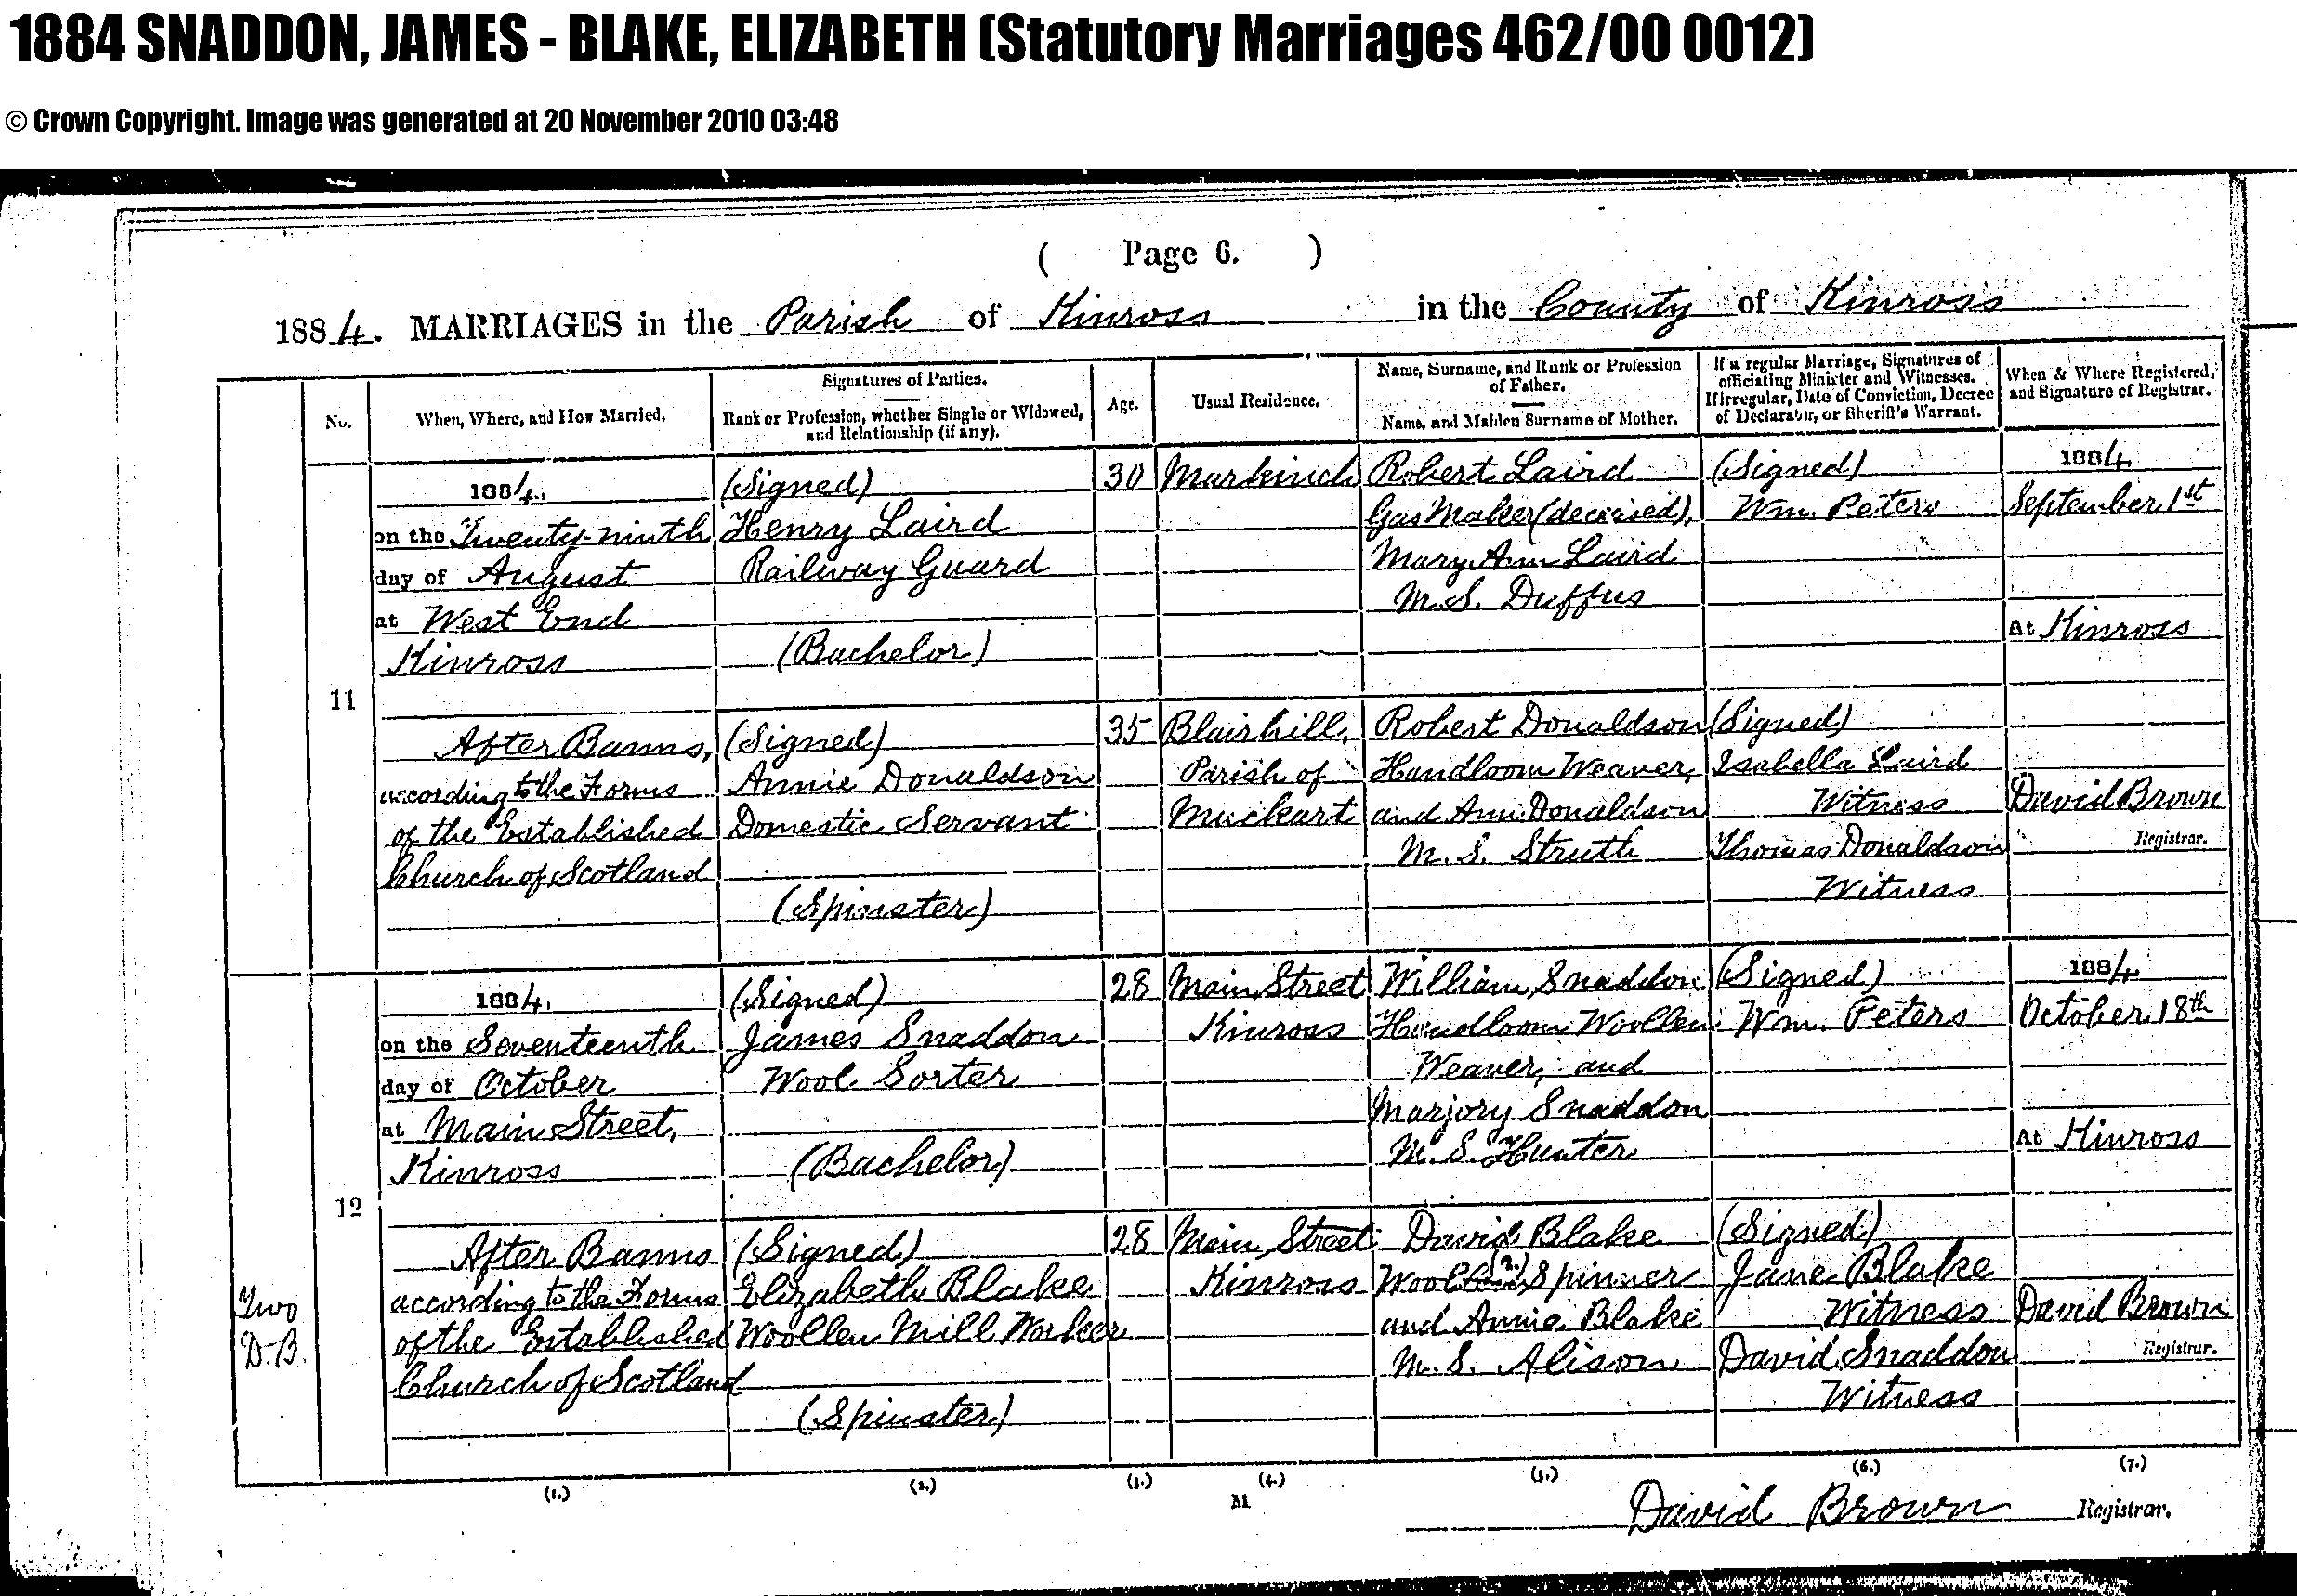 1884 SNADDON, JAMES - BLAKE, ELIZABETH (Statutory Marriages 462/00 0012)
© Crown Copyright. Image was generated at 20 November 2010 03:48
( Page 6. )
1884. MARRIAGES in the Parish of Kinross in the County of Kinross
No.
When, Where, and How Married.
Signatures of Parties.
Rank or Profession, whether Single or Widowed,
and Relationship (if any).
Age.
Usual Residence.
Name, Surname, and Rank or Profession
of Father.
Name, and Maiden Surname of Mother.
If a regular Marriage, Signatures of
officiating Minister and Witnesses.
If irregular, Date of Conviction, Decree
of Declarator, or Sheriff's Warrant.
When & Where Registered,
and Signature of Registrar.
11
1884.
on the Twenty-ninth
day of August
at West End
Kinross
After Banns,
according to the Forms
of the Established
Church of Scotland
(Signed)
Henry Laird
Railway Guard
(Bachelor)
(Signed)
Annie Donaldson
Domestic Servant
(Spinster)
30
35
Markinch
Blairhill,
Parish of
Muckart
Robert Laird
Gas Maker (deceased),
Mary Ann Laird
M.S. Duffus
Robert Donaldson
Handloom Weaver,
and Ann Donaldson
M.S. Struth
(Signed)
Wm. Peters
(Signed)
Isabella Laird
Witness
Thomas Donaldson
Witness
1884
September 1st
At Kinross
David Brown
Registrar.
12
1884.
on the Seventeenth
day of October
at Main Street,
Kinross
After Banns
according to the Forms
of the Established
Church of Scotland
(Signed)
James Snaddon
Wool Sorter
(Bachelor)
(Signed)
Elizabeth Blake
Woollen Mill Worker
(Spinster)
28
28
Main Street
Kinross
Main Street
Kinross
William Snaddon
Handloom Woollen
Weaver, and
Marjory Snaddon
M.S. Hunter
David Blake
Wool Spinner
and Annie Blake
M.S. Alison
(Signed)
Wm. Peters
(Signed)
Jane Blake
Witness
David Snaddon
Witness
1884
October 18th
At Kinross
David Brown
Registrar.
Two
D.B.
(1.) (2.) (3.) (4.) (5.) (6.) (7.)
M
David Brown Registrar.